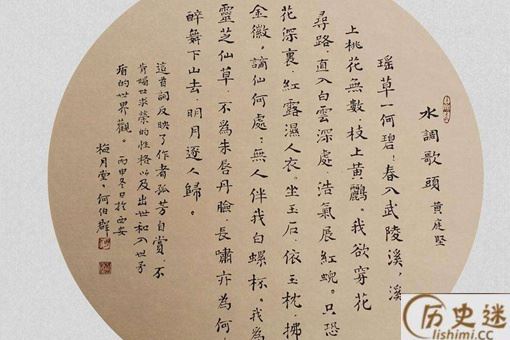 水調歌頭 黄庭堅
瑶草一何碧！春入武陵溪，溪
上桃花無數，枝上黄鸝。我欲穿花
尋路，直入白雲深處，浩氣展紅蜺。只恐
花深裏，紅露濕人衣。坐玉石，依玉枕，拂
金徽，謫仙何處？無人伴我白螺杯。我為
靈芝仙草，不為朱唇丹臉，長嘯亦為何
醉舞下山去，明月逐人歸。
這首詞反映了作者孤芳自賞、不
肯媚世求榮的性格以及出世和入世矛
盾的世界觀。丙申冬日於西安
梅月堂，何伯群
历史迷
lishimi.cc